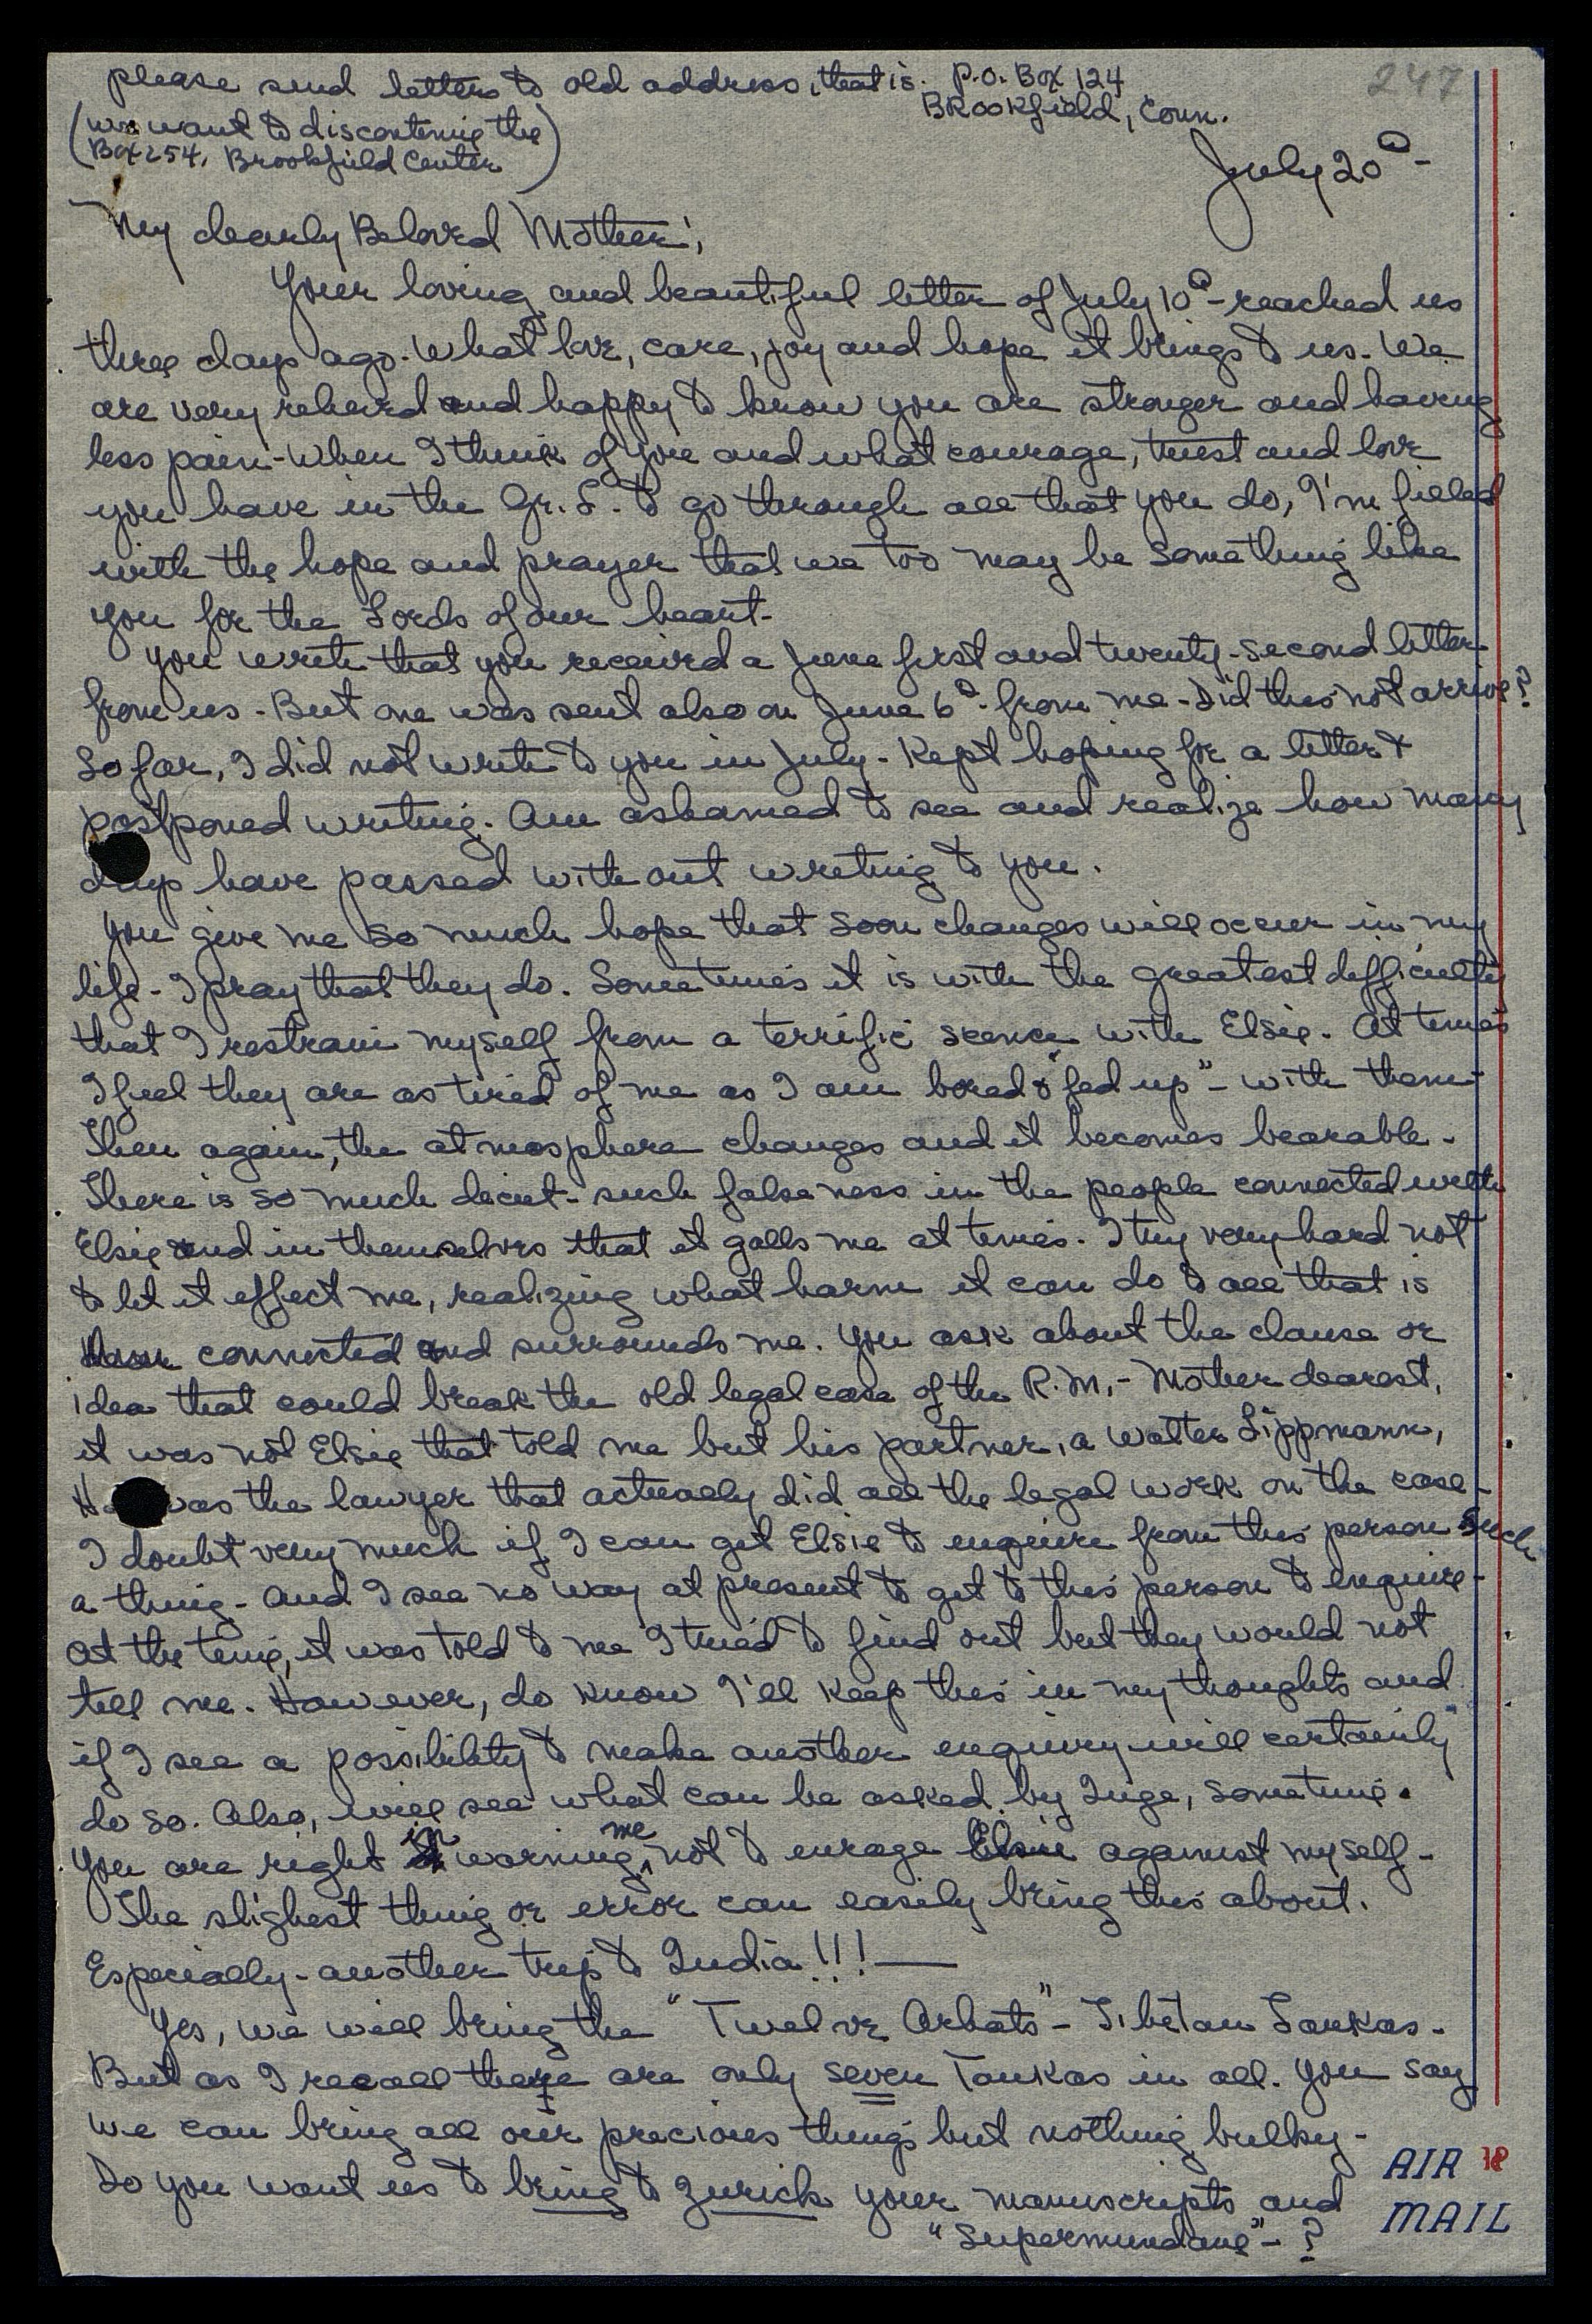 please send letters to old address, that is. P.O. Box 124
Brookfield, Conn.
247
(we want to discontenue the
Box 254, Brookfield Center)
July 20th -
My dearly Beloved Mother,
Your loving and beautiful letter of July 10th - reached us
three days ago. What love, care, joy and hope it brings to us. We
are very relieved and happy to know you are stronger and having
less pain - When I think of you and what courage, trust and love
you have in the Gr. L. to go through all that you do, I'm filled
with the hope and prayer that we too may be something like
you for the Lords of our heart.
You write that you received a June first and twenty-second letter
from us - But one was sent also on June 6th - from me - Did this not arrive?
So far, I did not write to you in July - Kept hoping for a letter &
postponed writing. Am ashamed to see and realize how many
days have passed without writing to you.
You give me so much hope that soon changes will occur in my
life - I pray that they do. Sometimes it is with the greatest difficulty
that I restrain myself from a terrific scence with Elsie. At times
I feel they are as tired of me as I am bored & "fed up" - with them -
Then again, the atmosphere changes and it becomes bearable -
There is so much deceit - such falseness in the people connected with
Elsie and in themselves that it galls me at times. I try very hard not
to let it effect me, realizing what harm it can do to all that is
connected and surrounds me. You ask about the clause or
idea that could break the old legal case of the R.M. - Mother dearest,
it was not Elsie that told me but his partner, a Walter Lippmann,
He was the lawyer that actually did all the legal work on the case -
I doubt very much if I can get Elsie to enquire from this person such
a thing - and I see no way at present to get to this person to enquire -
At the time, it was told to me I tried to find out but they would not
tell me. However, do know I'll keep this in my thoughts and
if I see a possibility to make another enquiry will certainly
do so. Also, will see what can be asked by Inge, sometime.
You are right in warning me not to enrage Elsie against myself -
The slighest thing or error can easily bring this about.
Especially - another trip to India!!! —
Yes, we will bring the "Twelve Arhats" - Tibetan Tankas -
But as I recall there are only seven Tankas in all. You say
we can bring all our precious things but nothing bulky -
Do you want us to bring to Zurich your manuscripts and
"Supermundane" - ?
AIR
MAIL